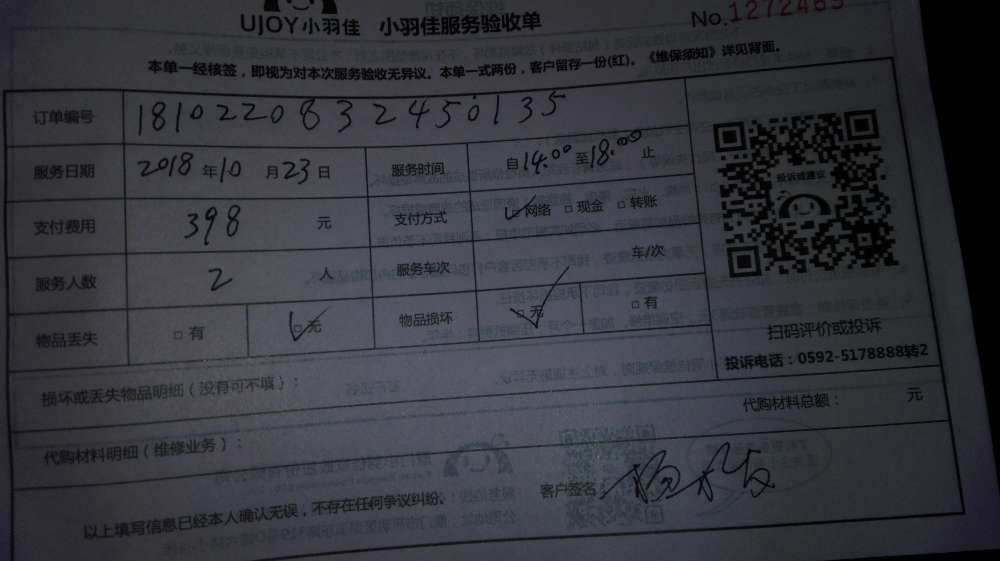 UJOY小羽佳 小羽佳服务验收单
No.1272465
本单一经核签，即视为对本次服务验收无异议。本单一式两份，客户留存一份(红)。《维保须知》详见背面。
订单编号 1810220832450135
服务日期 2018年10月23日 服务时间 自14:00至18:00止
支付费用 398 元 支付方式 ☑网络 □现金 □转账
服务人数 2 人 服务车次 车/次
物品丢失 □有 ☑无 物品损坏 ☑无 □有
投诉或建议
扫码评价或投诉
投诉电话：0592-5178888转2
损坏或丢失物品明细（没有可不填）：
代购材料明细（维修业务）： 代购材料总额： 元
以上填写信息已经本人确认无误，不存在任何争议纠纷。 客户签名：